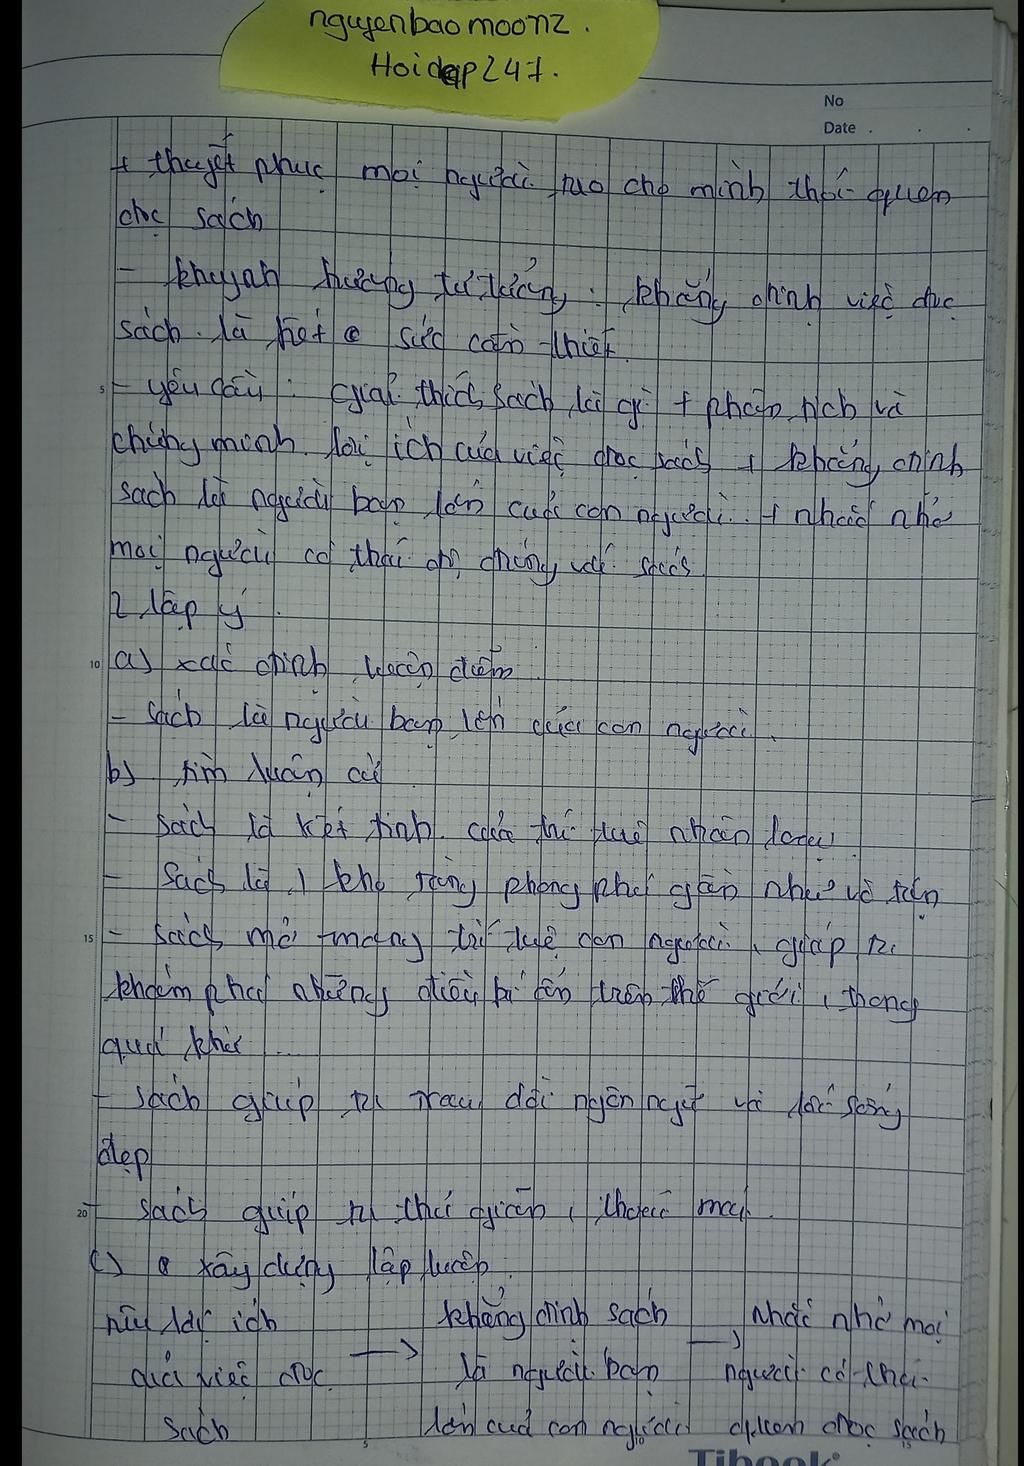 nguyenbaomoonz.
Hoidap247.
No
Date . . .
+ thuyết phục mọi người tạo cho mình thói quen
đọc sách
- khuynh hướng tư tưởng : khẳng định việc đọc
sách là hết sức cần thiết.
5 - yêu cầu : giải thích sách là gì + phân tích và
chứng minh lợi ích của việc đọc sách + khẳng định
sách là người bạn lớn của con người. + nhắc nhở
mọi người có thái độ đúng với sách
2 lập ý.
10 a) xác định luận điểm
- sách là người bạn lớn của con người.
b) tìm luận cứ
- sách là kết tinh của trí tuệ nhân loại.
- sách là 1 kho tàng phong phú gần như vô tận
15 - sách mở mang trí tuệ con người, giúp ta
khám phá những điều bí ẩn trên thế giới, trong
quá khứ ...
- sách giúp ta trau dồi ngôn ngữ và lối sống
đẹp
20 - sách giúp ta thư giãn, thoải mái.
c) xây dựng lập luận.
nêu lợi ích khẳng định sách nhắc nhở mọi
của việc đọc → là người bạn → người có thói
sách lớn của con người quen đọc sách
5 10 15
Tibook